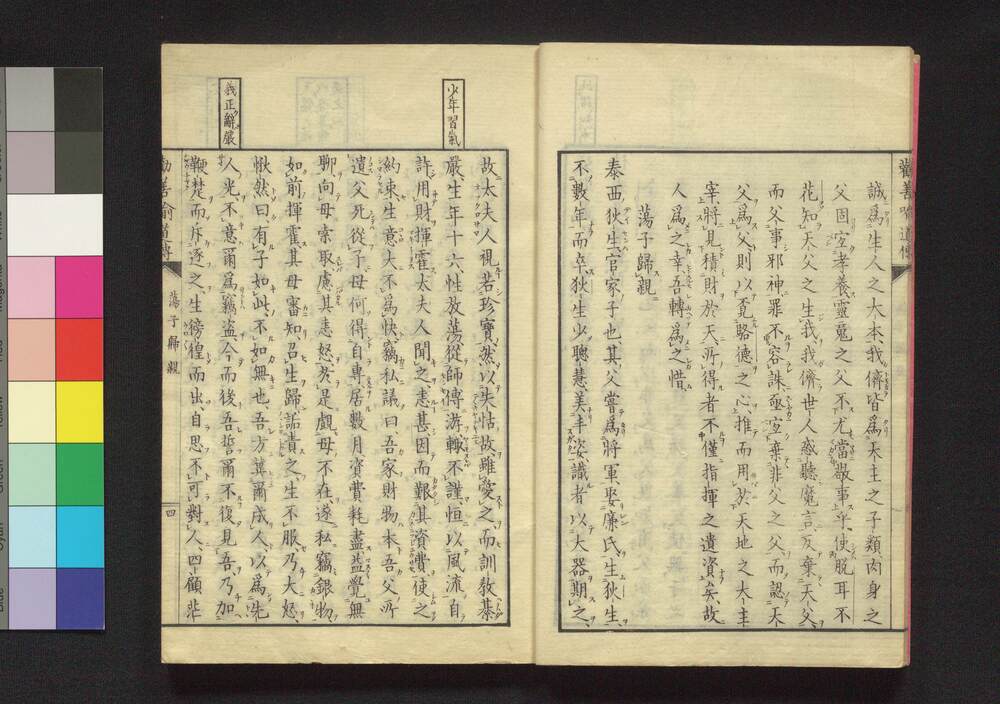 勸善喻道傳
誠爲生人之大本我儕皆爲天主之子類肉身之
父固宜孝養靈魂之父不尤當敬事乎使脫耳不
花知天父之生我我儕世人惑聽魔言反棄天父
而父事邪神罪不容誅亟宜棄非父之父而認天
父爲父則以不電賂德之心推而用於天地之大主
宰將見積財於天所得者不僅指揮之遺資矣故
人爲之幸吾轉爲之惜
蕩子歸親
泰西狄生官家子也其父嘗爲將軍娶廉氏生狄生
不數年而卒狄生少聰慧美丰姿識者以大器期之
少年習氣
義正辭嚴
故太夫人視若珍寶然以失怙故雖愛之而訓教綦
嚴生年十六性放蕩從師傅游輒不謹恒以風流自
許用財揮霍太夫人聞之恚甚因而艱其資費使之
約束生意大不爲快竊私議曰吾家財物本吾父所
遺父死從子母何得自專居數月資費耗盡益覺無
聊向母索取慮其恚怒於是覷母不在遂私竊銀物
如前揮霍其母審知召生歸詬責之生不服乃大怒
愀然曰有子如此不如無也吾方冀爾成人以爲先
人光不意爾爲竊盜今而後吾誓爾不復見吾乃加
鞭楚而斥逐之生徬徨而出自思不可對人四顧非
勸善喻道傳
蕩子歸親
四